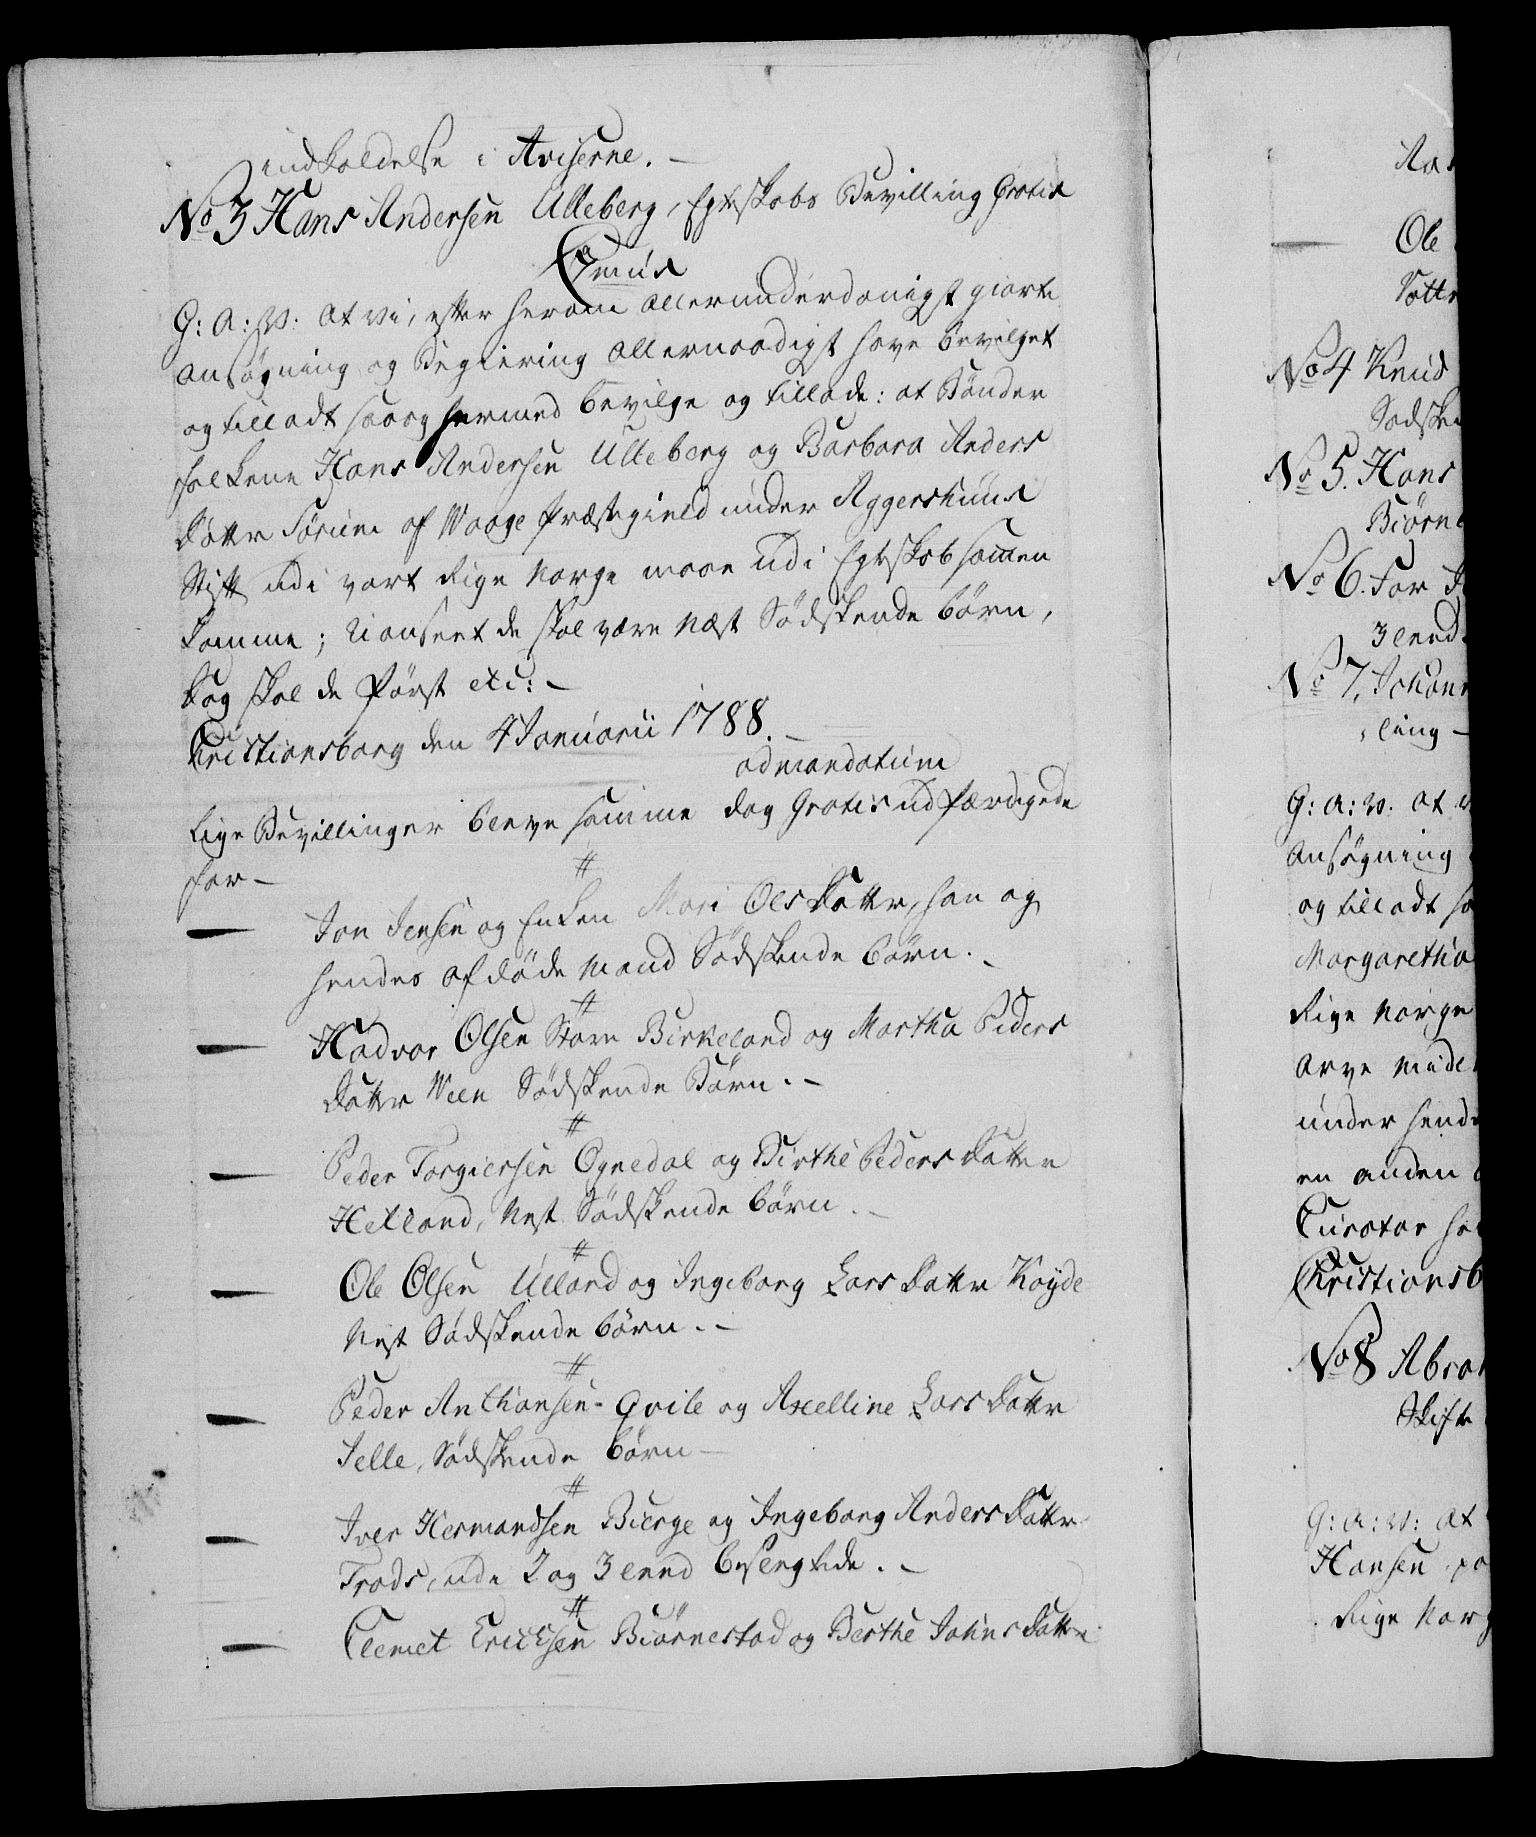 indkaldelse i Aviserne. –
No 3 Hans Andersen Ulleberg, Egteskabs Bevilling Gratis
G: A: V: at vi, efter herom allerunderdanigst giorte
ansøgning og Begiering allernaadigst have bevilget
og tilladt saa og hermed bevilge og tillade: at Bønder
folkene Hans Andersen Ulleberg og Barbara Anders
datter Sørum af Waage Præstegield under Aggershuus
Stift udi vort Rige Norge maae udi Egteskab sammen
komme; uanseet de skal være Næst Sødskende børn,
dog skal de först etc: –
Christiansborg den 4 Januarii 1788. –
ad mandatum
Lige Bevillinger bleve samme dag Gratis udfærdigede
for –
Jon Jensen og Enken Mari Olsdatter, han og
hendes afdøde Mand Sødskende børn. –
Hadvor Olsen Store Birkeland og Martha Peders
datter Ween Sødskende Børn. –
Peder Torgiersen Ognedal og Birthe Pedersdatter
Hetland, Nest Sødskende børn. –
Ole Olsen Ulland og Ingeborg Larsdatter Høyde
Nest Sødskende børn. –
Peder Anthonsen Qvile og Axelline Larsdatter
Jelle, Sødskende børn –
Iver Hermandsen Bierge og Ingeborg Andersdatter
Trads, udi 2 og 3 Leed besvogrede. –
Clemet Ericksen Biørnestad og Berthe Johnsdatter
Ole
No 4 Knud
Sødsken
No 5. Hans
Biørne
No 6. For
3 leed
No 7, Johan
ling –
G: A: V: at v
ansøgning
og tilladt sa
Margaretha
Rige Norge
arve midl
under hende
en anden
Curator he
Christiansb
No 8 Abra
Skifte
G: A: V: at
Hansen pa
Rige Norg